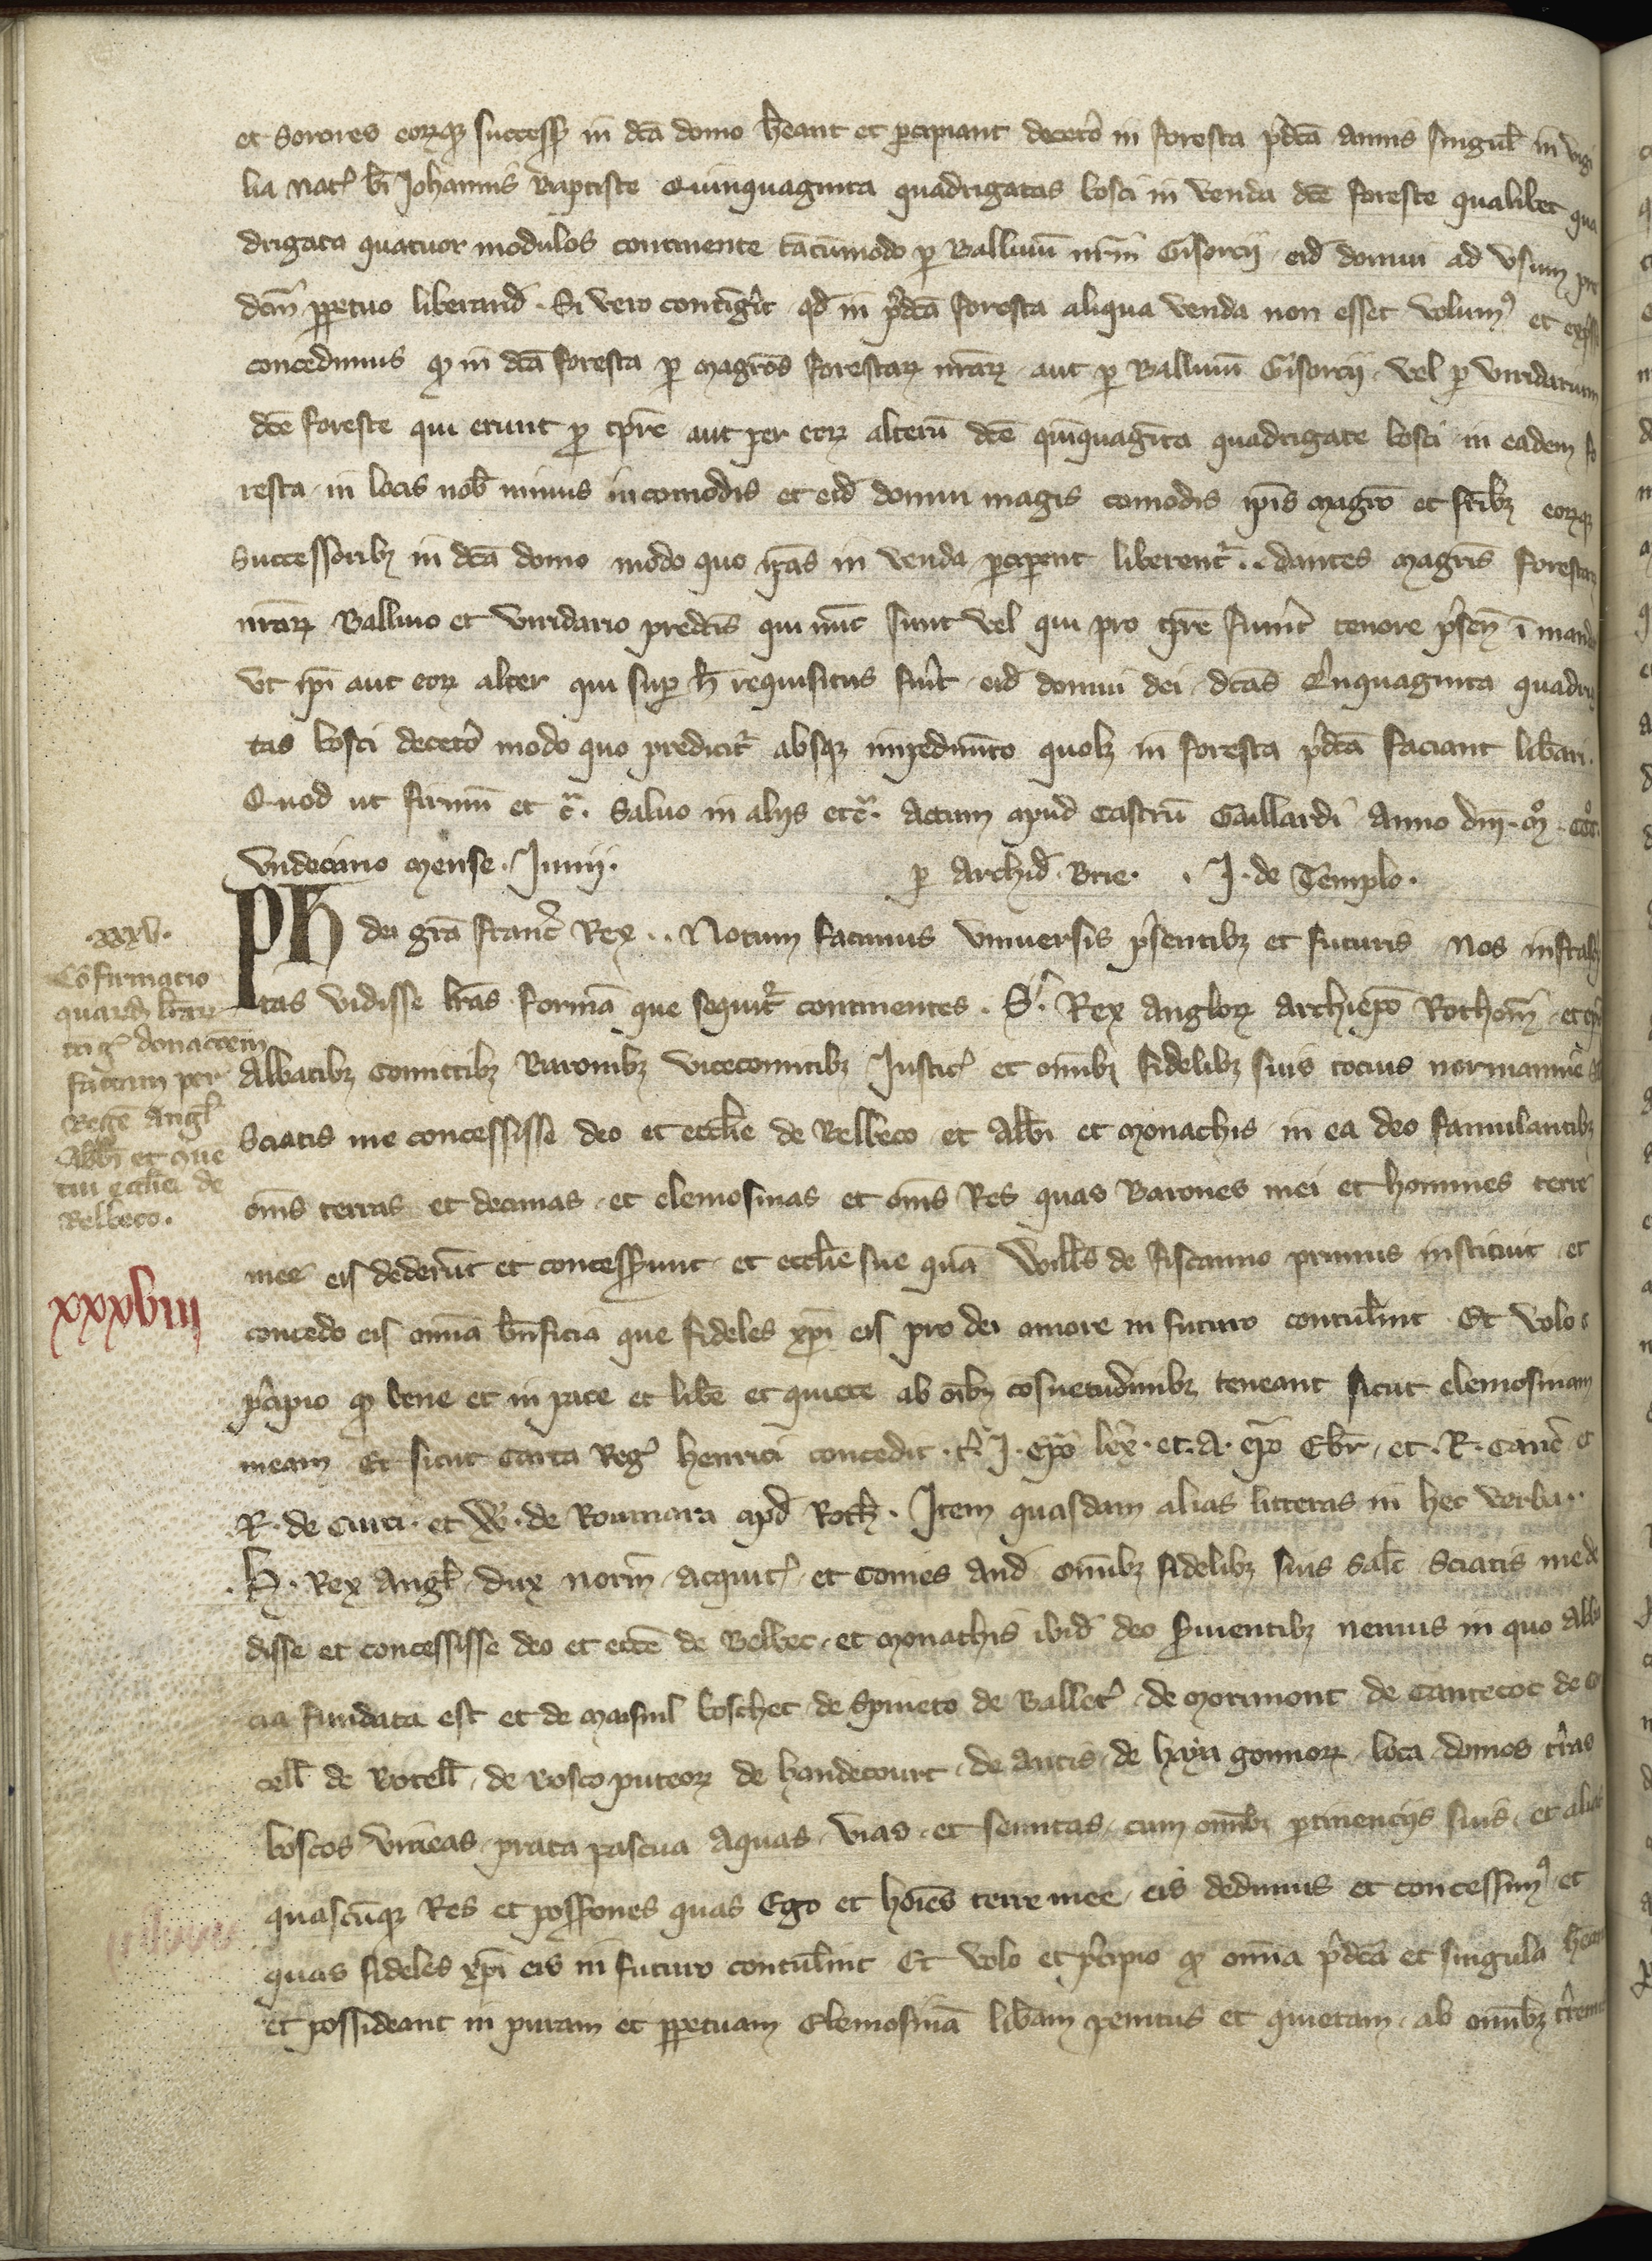 et Sorores eorumq; success̄ in dc̄a domo h̄eant et ꝑcipiant decet̄o in foresta p̄dc̄a annis singul̄ in vigi
lia nat̕ bī Johannis Baptiste Quinquaginta quadrigatas bosci in venda dc̄e foreste qualibet qua
drigata quatuor modulos continente tātūmodo ꝑ Balliuū nr̄m Gisorcij eid̄ domui ad vsum pre
dc̄m ꝑpetuo liberand̄. Si vero contiḡit qd̄ in p̄dc̄a foresta aliqua venda non esset volum⁹ et
concedimus ꝙ in dc̄a foresta ꝑ magr̄os forestaꝝ nr̄aꝝ aut ꝑ Balliuū Gisorcij vel ꝑ viridarium
dc̄e foreste qui erunt ꝓ tp̄re aut per eoꝝ alterū dc̄e quīquagīta quadrigate bosci in eadem fo
resta in locis nob̄ minus incomodis et eid̄ domui magis comodis ip̄is magr̄o et fr̄ib; eoꝝq;
Successorib; in dc̄a domo modo quo ip̄as in venda ꝑciꝑent liberent̄. dantes magr̄is forestaꝝ
nr̄aꝝ Balliuo et viridario predc̄is qui nūc sunt vel qui pro tp̄re fuerīt tenore p̄sen̄ ī mand̄
vt ip̄i aut eoꝝ alter qui sup̄ h̄ requisitus fūit eid̄ domui dei dc̄as Q̄nquaginta quadriga
tas bosci decet̄o modo quo predicit̄ absq; impedimēto quolꝫ in foresta p̄dc̄a faciant lib̄ari.
Quod ut firmū et c̄. Saluo in alijs etc̄. Actum apud Castrū Gaillardi Anno dn̄i. mº. cccº.
vndecimo mense. Junij. ꝑ Archid̄. Brie. . J. de Templo.
.xxxv.
Cōfirmatio
quarūd̄ lr̄aꝝ
donac̄oem
factam per
Regē Angl̄
Abb̄i et
ecclie de
Belbeco.
xxxviii
PH dei grā Franc̄ Rex .. Notum facimus vniuersis p̄sentib; et futuris Nos infrasc̄p
tas vidisse lr̄as formā que sequit̄ continentes. S̄. Rex Angloꝝ Archiep̄o Rothom̄ et ep̄is
Abbatib; Comitib; Baronib; vicecomitib; Justic̕ et om̄ib; fidelib; suis tocius normannie
Sciatis me concessisse deo et eccl̄ie de Belbeco et Abb̄i et monachis in ea deo famulantib;
om̄s terras et decimas et elemosinas et om̄s Res quas Barones mei et homines terre
mee eis dederūt et concess̄unt et eccl̄ie sue quā Will̄s de fiscanno primus instituit et
concedo eis omīa bn̄ficia que fideles xp̄i eis pro dei amore in futuro contul̄int Et volo
p̄cipio ꝙ bene et in pace et lib̄e et quiete ab oīb; cosuetudinib; teneant sicut elemosinam
meam Et sicut carta Reg̕ henrici concedit. t̄. J. ep̄o lex̄. et. A. ep̄o Ebr̄. et. R. Canc̄ et
R. de Curci. et W. de Roumara apd̄ Roth̄. Item quasdam alias litteras in hec verba.
.H. Rex Angl̄. dux norm̄. acquit̕ et Comes And̄ om̄ib; fidelib; suis sal̄t Sciatis me de
disse et concessisse deo et ecc̄e de Belbec. et monachis ibid̄ deo s̄uientib; nemus in quo Abba
cia fundata est et de maisnil boschet de Spineto de Ballet̕. de morimont de Cantecoc de
cell̄ de Botell̄. de bosco puteoꝝ de handecourt. de autis. de haya gonnoꝝ. loca. domos t̄ras
boscos vineas. prata pascua Aquas. vias. et semitas. cum om̄ib; ꝑtinencijs suis. et alias
quascūq; Res et possessiones quas Ego et hoīes terre mee. eis dedimus et concessim⁹ et
quas fideles xp̄i eis in futuro contul̄int Et volo et p̄cipio ꝙ omīa p̄dc̄a et singula h̄eant
et possideant in puram et ꝑpetuam Elemosinā lib̄am penitus et quietam. ab om̄ib;